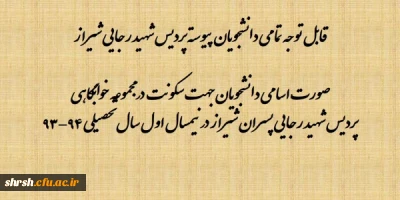 قابل توجه تمامی دانشجویان پیوسته پردیس شهید رجایی شیراز
صورت اسامی دانشجویان جهت سکونت در مجموعه خوابگاهی
پردیس شهید رجایی پسران شیراز در نیمسال اول سال تحصیلی ۹۴-۹۳
shrsh.cfu.ac.ir